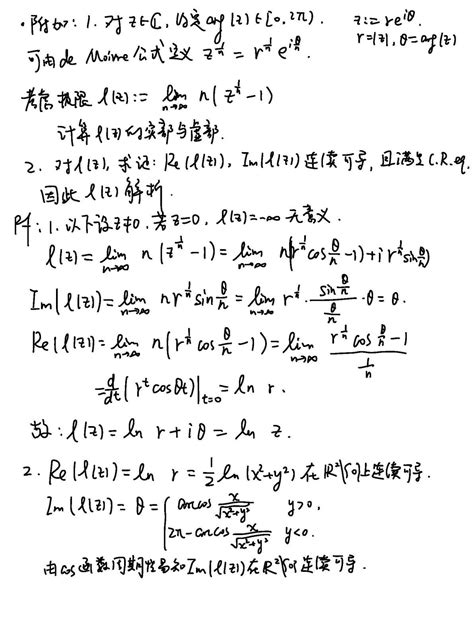 ·附加: 1. 对 z∈ℂ, 约定 arg(z)∈[0,2π). z:=re^{iθ}.
可由 de Moivre 公式定义 z^{1/n} = r^{1/n} e^{iθ/n}. r=|z|, θ=arg(z)
考虑极限 l(z):= lim_{n→∞} n(z^{1/n}-1)
计算 l(z) 的实部与虚部.
2. 对 l(z), 求证: Re(l(z)), Im(l(z)) 连续可导, 且满足 C.R.eq.
因此 l(z) 解析.
1. 以下设 z≠0. 若 z=0, l(z)=-∞ 无意义.
l(z)= lim_{n→∞} n(z^{1/n}-1)= lim_{n→∞} n((r^{1/n}cos θ/n -1)+i r^{1/n} sin θ/n)
Im(l(z))= lim_{n→∞} n r^{1/n} sin θ/n = lim_{n→∞} r^{1/n} · (sin θ/n)/(θ/n) · θ = θ.
Re(l(z))= lim_{n→∞} n(r^{1/n}cos θ/n -1)= lim_{n→∞} (r^{1/n} cos θ/n -1)/(1/n)
= d/dt (r^t cosθt)|_{t=0} = ln r.
故: l(z)= ln r + iθ = ln z.
2. Re(l(z))= ln r = 1/2 ln(x²+y²) 在 ℝ²\{0} 上连续可导.
Im(l(z)) = θ = { arccos x/√(x²+y²) y>0,
2π-arccos x/√(x²+y²) y<0.
由 cos 函数周期性易知 Im(l(z)) 在 ℝ²\{0} 连续可导.